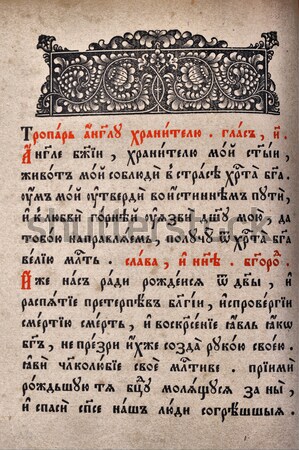 Тропарь а҆́гг҃лꙋ хранителю . гласъ , и҃ .
А҆́гг҃ле бж҃їи , хранителю мо́й ст҃ы́и ,
живо́тъ мо́й соблюди в стра́сѣ хр҃та̀ бг҃а .
ѹ҆́мъ мо́й ѹ҆твердѝ во и҆́стиннемъ путѝ ,
и҆ к любвѝ го́рнѣй ѹ҆ꙗзвѝ дш҃ꙋ мою̀ , да
тобо́ю направлѧ́емь , полꙋчꙋ̀ ѿ хр҃та̀ бг҃а
ве́лїю млть . сла́ва , и҆ ны́нѣ . бг҃оро .
И҆́же на́съ ра́ди рожде́исѧ ѿ дв҃ы , и҆
распѧ́тїе претерпѣ́въ бл҃гїи , и҆спрове́ргїи
сме́ртїю сме́рть , и҆ воскр҃се́нїе ꙗ҆́вль ꙗ҆́кѡ
бг҃ъ , не пре́зри и҆́хже созда̀ рꙋко́ю свое́ю .
ꙗ҆вѝ чл҃колю́бїе своѐ млтиве . прїимѝ
ро́ждьшꙋю тѧ бц҃ꙋ молѧ́щꙋюсѧ за ны̀ ,
и҆ спасѝ сп҃се на́шъ лю́ди согрѣ́шшыѧ .
shutterstock